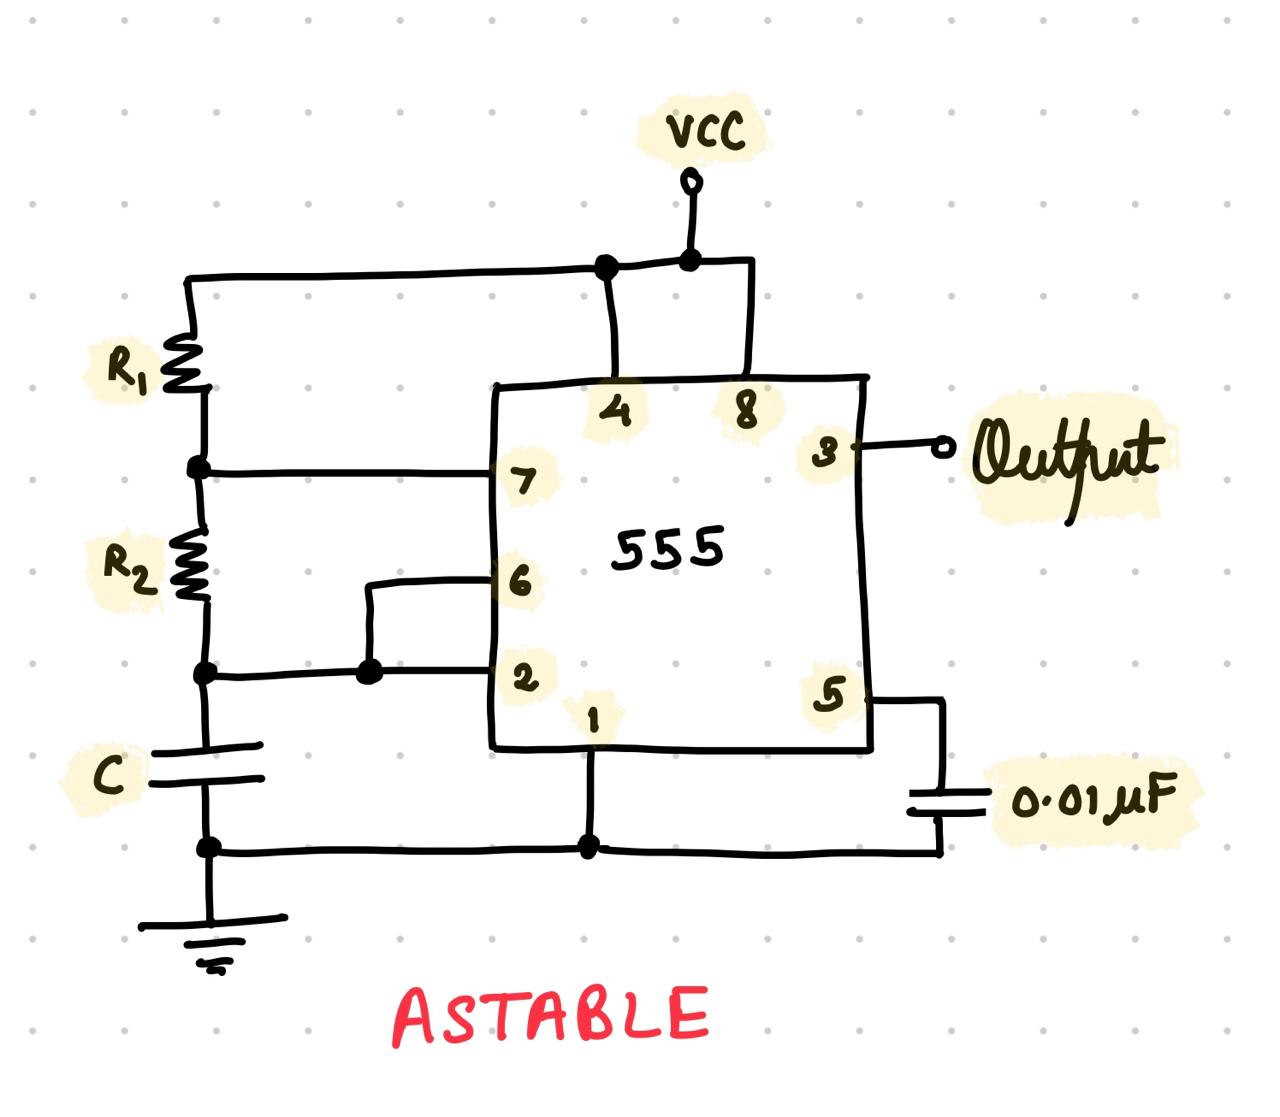 VCC
R1
4
8
3
Output
7
555
R2
6
2
5
1
C
0.01µF
ASTABLE